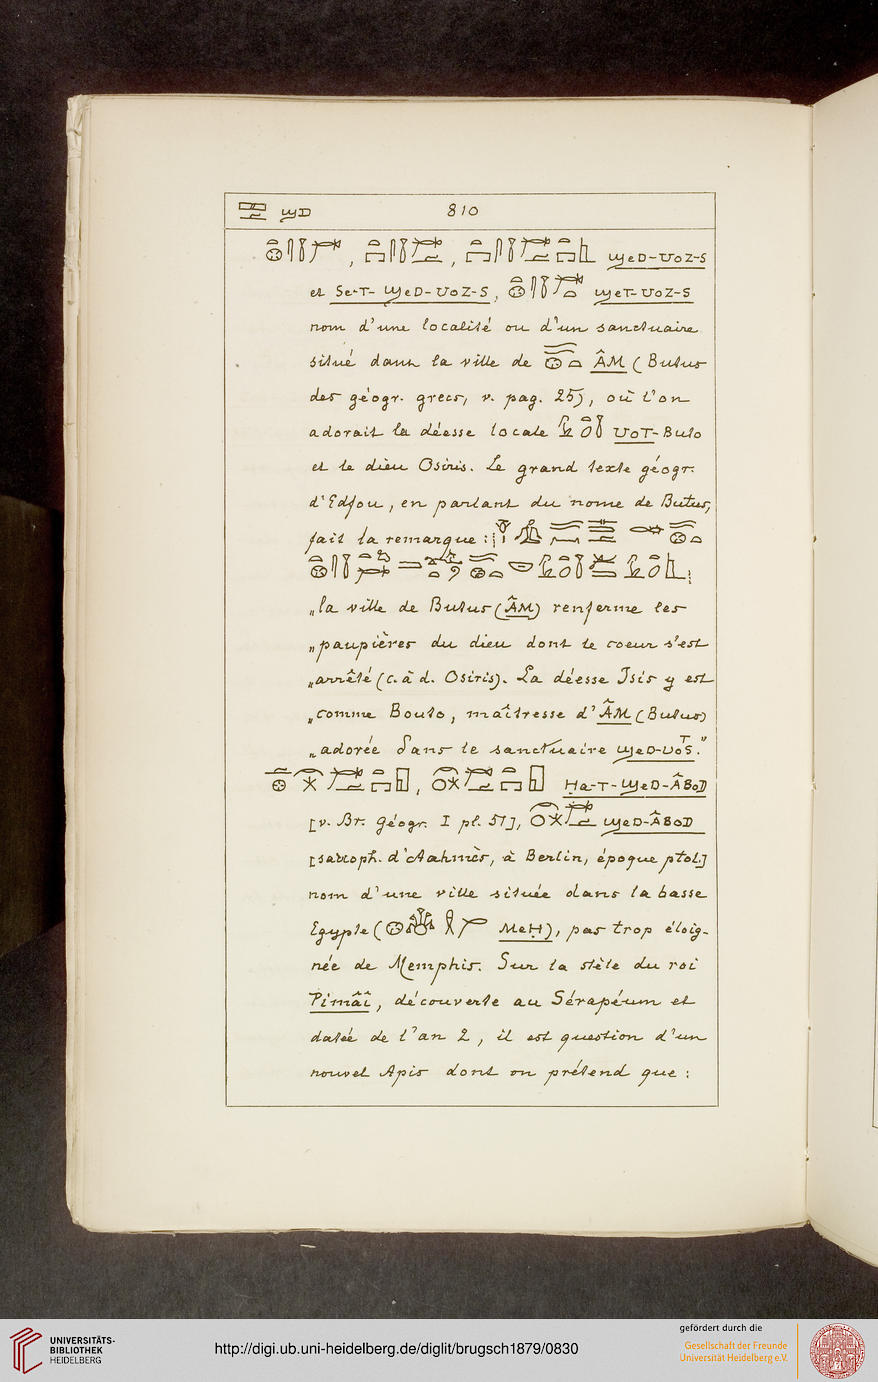 ϣD 810
ϣeD-ƱoZ-S
et Se-T-ϣeD-ƱoZ-S, ϣeT-ƱoZ-S
nom d'une localité ou d'un sanctuaire
situé dans la ville de ÂM (Butus
des géogr. grecs, v. pag. 25), où l'on
adorait la déesse locale ƱoT-Buto
et le dieu Osiris. Le grand texte géogr.
d'Edfou, en parlant du nome de Butus,
fait la remarque :
„la ville de Butus (ÂM) renferme les
„paupières du dieu dont le coeur s'est
„arrêté (c. à d. Osiris). La déesse Isis y est
„comme Bouto, maîtresse d'ÂM (Butus)
„adorée dans le sanctuaire ϣeD-ƱoTS."
Ḥa-T-ϣeD-ÂBoD
[v. Br. Géogr. I pl. 51], ϣeD-ÂBoD
[sarcoph. d'Aahmès, à Berlin, époque ptol.]
nom d'une ville située dans la basse
Egypte ( MeḤ), pas trop éloig-
née de Memphis. Sur la stèle du roi
Pimâî, découverte au Sérapéum et
datée de l'an 2, il est question d'un
nouvel Apis dont on prétend que :
UNIVERSITÄTS-
BIBLIOTHEK
HEIDELBERG
http://digi.ub.uni-heidelberg.de/diglit/brugsch1879/0830
gefördert durch die
Gesellschaft der Freunde
Universität Heidelberg e.V.